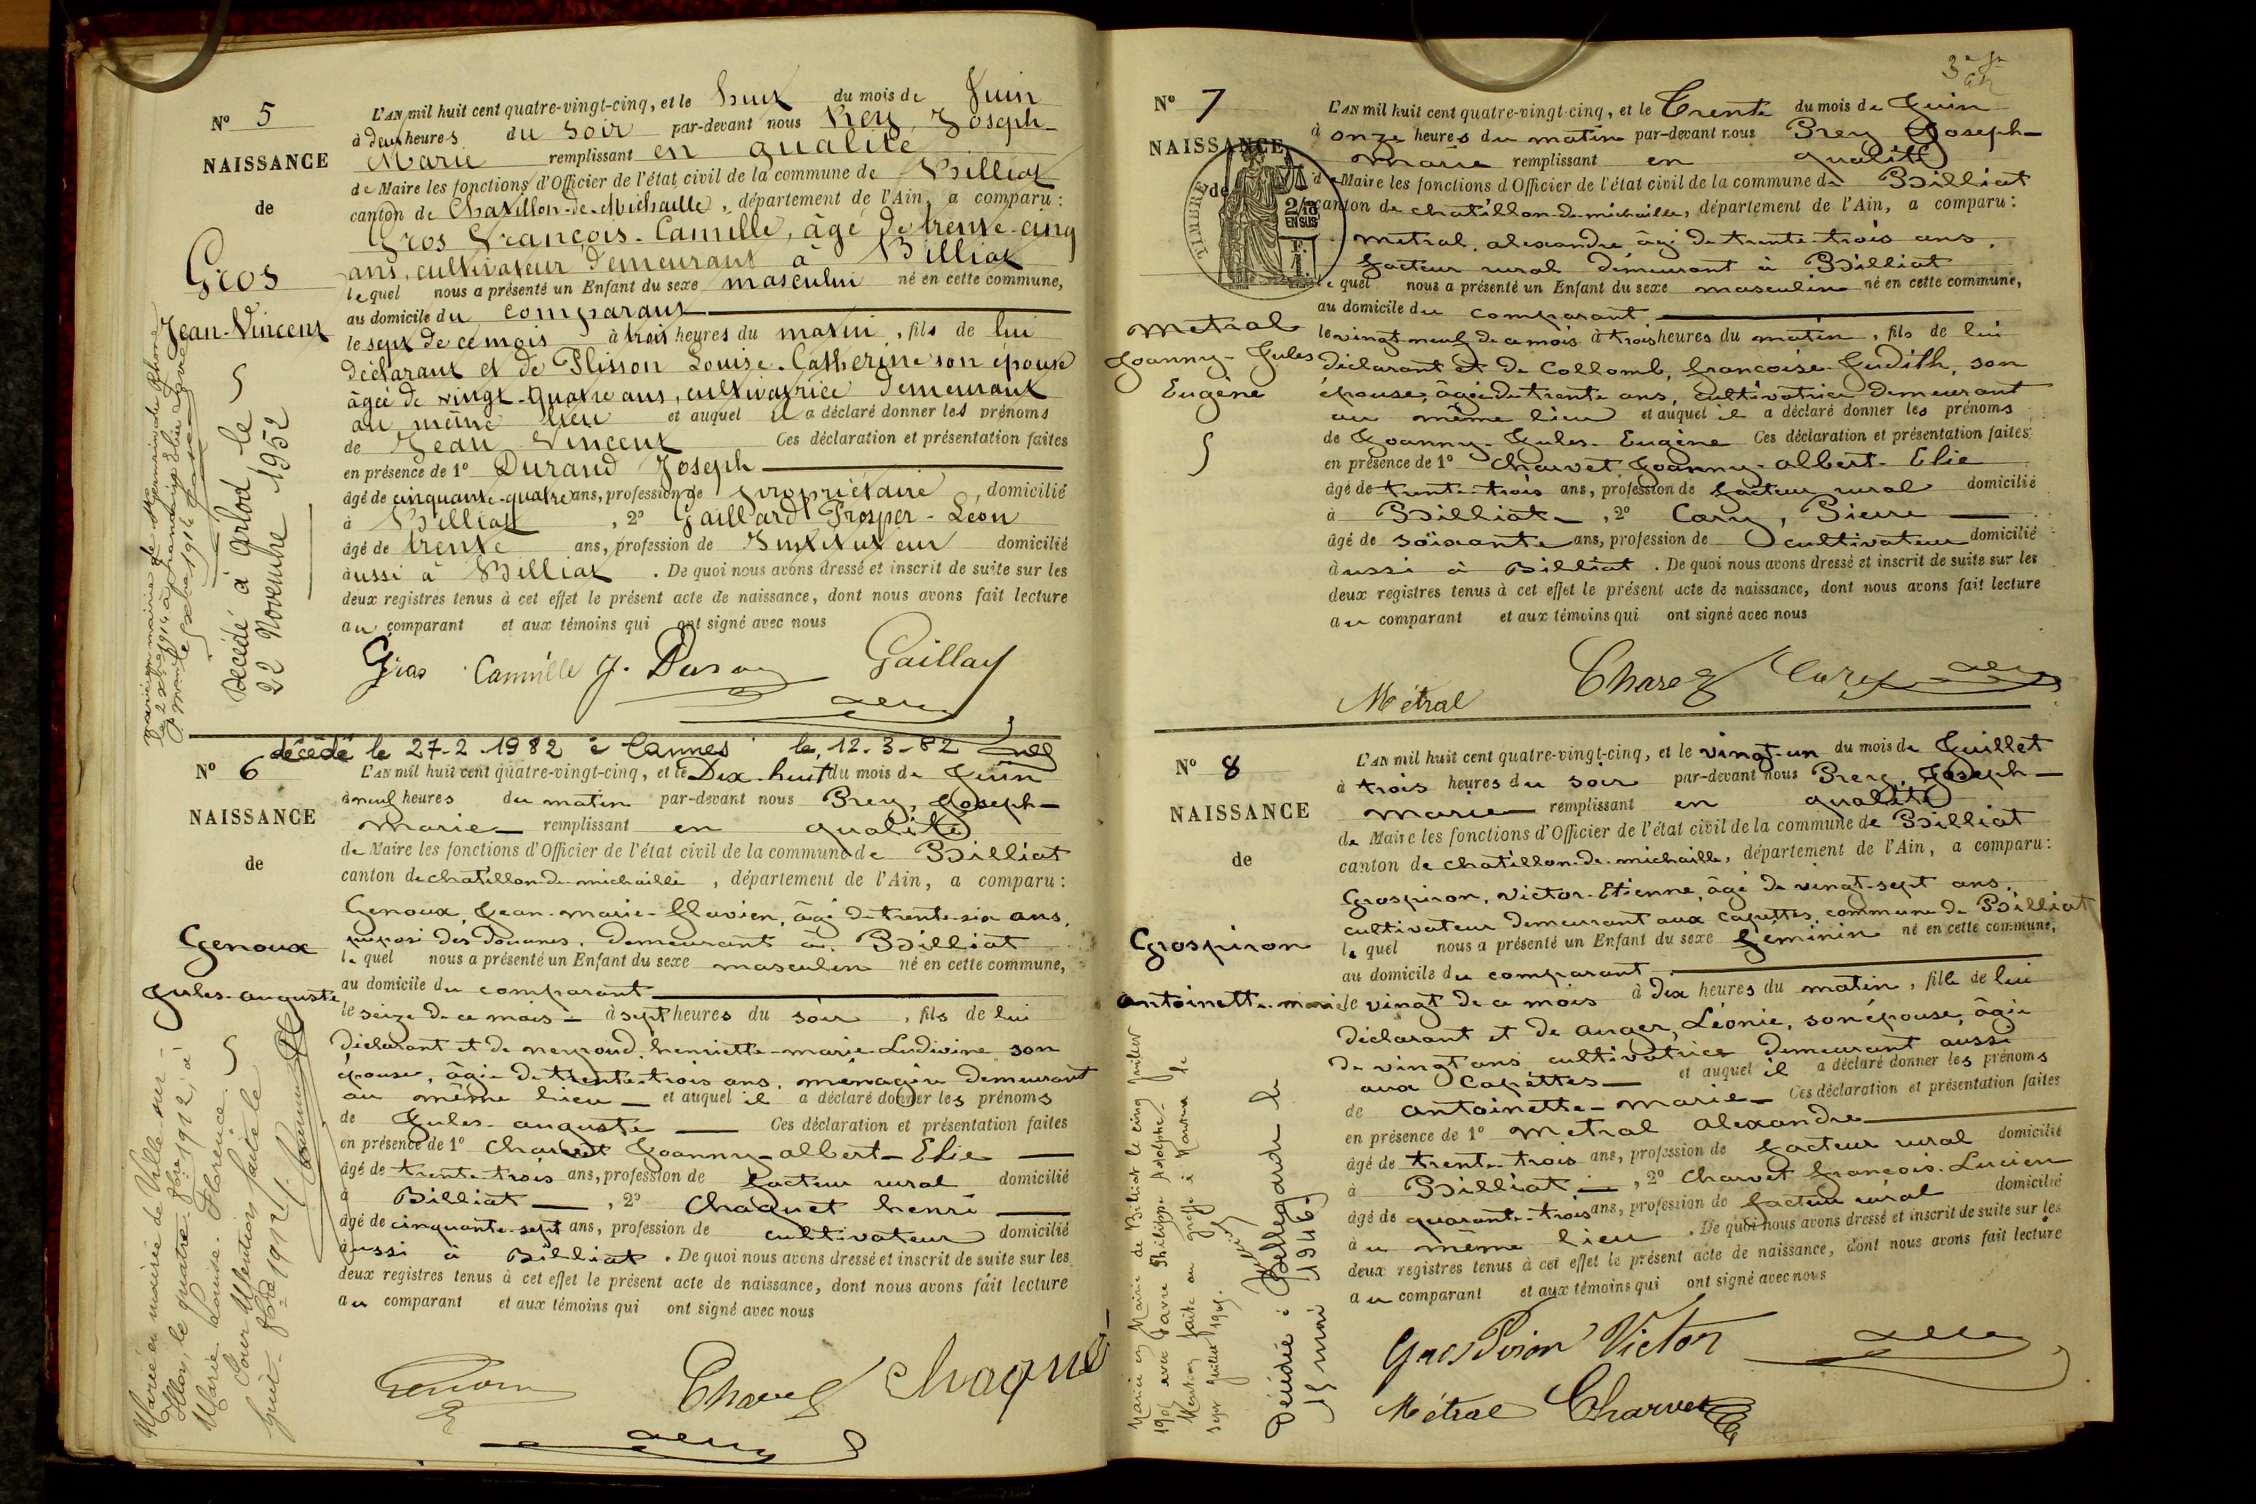 N° 5
NAISSANCE
de
Gros
Jean-Vincent
Décédé à Arlod le
22 Novembre 1952
L'AN mil huit cent quatre-vingt-cinq, et le huit du mois de Juin
à deux heures du soir par-devant nous Prey, Joseph-
Marie remplissant en qualité
de Maire les fonctions d'Officier de l'état civil de la commune de Billiat
canton de Chatillon-de-Michaille, département de l'Ain, a comparu :
Gros François-Camille, âgé de trente-cinq
ans, cultivateur demeurant à Billiat
lequel nous a présenté un Enfant du sexe masculin né en cette commune,
au domicile du comparant
le sept de ce mois à trois heures du matin, fils de lui
déclarant et de Flisson Louise-Catherine son épouse
âgée de vingt-quatre ans, cultivatrice demeurant
au même lieu et auquel il a déclaré donner les prénoms
de Jean Vincent Ces déclaration et présentation faites
en présence de 1° Durand Joseph
âgé de cinquante-quatre ans, profession de propriétaire, domicilié
à Billiat, 2° Gaillard Prosper-Léon
âgé de trente ans, profession de Instituteur domicilié
aussi à Billiat. De quoi nous avons dressé et inscrit de suite sur les
deux registres tenus à cet effet le présent acte de naissance, dont nous avons fait lecture
au comparant et aux témoins qui ont signé avec nous
Gros Camille J. Duran Gaillard
décédé le 27-2-1982 à Cannes le, 12-3-82
N° 6
NAISSANCE
de
Genoux
Jules-auguste
Marié en mairie de Ville-sur-
le quatre 1912 à
Marie Louise Florence.
Pour Mention faite le
huit 1912
L'AN mil huit cent quatre-vingt-cinq, et le Dix-huit du mois de Juin
à neuf heures du matin par-devant nous Prey, Joseph-
Marie remplissant en qualité
de Maire les fonctions d'Officier de l'état civil de la commune de Billiat
canton de chatillon-de-michaille, département de l'Ain, a comparu :
Genoux, Jean-marie-flavien, âgé de trente-six ans,
préposé des douanes, demeurant à Billiat
lequel nous a présenté un Enfant du sexe masculin né en cette commune,
au domicile du comparant
le seize de ce mois à sept heures du soir, fils de lui
déclarant et de neyroud, henriette-marie-Ludivine son
épouse, âgée de trente-trois ans, ménagère demeurant
au même lieu et auquel il a déclaré donner les prénoms
de Jules-auguste Ces déclaration et présentation faites
en présence de 1° Charvet Joanny-albert-Elie
âgé de trente-trois ans, profession de facteur rural domicilié
à Billiat, 2° Chaquet henri
âgé de cinquante-sept ans, profession de cultivateur domicilié
aussi à Billiat. De quoi nous avons dressé et inscrit de suite sur les
deux registres tenus à cet effet le présent acte de naissance, dont nous avons fait lecture
au comparant et aux témoins qui ont signé avec nous
N° 7
NAISSANCE
de
TIMBRE
2/10
EN SUS
metral
Joanny-Jules
Eugène
L'AN mil huit cent quatre-vingt-cinq, et le Trente du mois de Juin
à onze heures du matin par-devant nous Prey Joseph-
marie remplissant en qualité
de Maire les fonctions d'Officier de l'état civil de la commune de Billiat
canton de chatillon-de-michaille, département de l'Ain, a comparu :
metral, alexandre âgé de trente-trois ans,
facteur rural demeurant à Billiat
lequel nous a présenté un Enfant du sexe masculin né en cette commune,
au domicile du comparant
le vingt neuf de ce mois à trois heures du matin, fils de lui
déclarant et de Collomb, françoise-Judith, son
épouse, âgée de trente ans, cultivatrice demeurant
au même lieu et auquel il a déclaré donner les prénoms
de Joanny-Jules-Eugène Ces déclaration et présentation faites
en présence de 1° charvet Joanny-albert-Elie
âgé de trente-trois ans, profession de facteur rural domicilié
à Billiat, 2° Cary, Pierre
âgé de soixante ans, profession de cultivateur domicilié
aussi à Billiat. De quoi nous avons dressé et inscrit de suite sur les
deux registres tenus à cet effet le présent acte de naissance, dont nous avons fait lecture
au comparant et aux témoins qui ont signé avec nous
Métral Cary
N° 8
NAISSANCE
de
Grospiron
antoinette-marie
Mariée en Mairie de Billiat le cinq Juillet
avec Favre Philippe Joseph
Mention faite au greffe à Nantua le
sept Juillet
Décédée à Bellegarde le
15 mai 1946
L'AN mil huit cent quatre-vingt-cinq, et le vingt-un du mois de Juillet
à trois heures du soir par-devant nous Prey, Joseph-
marie remplissant en qualité
de Maire les fonctions d'Officier de l'état civil de la commune de Billiat
canton de chatillon-de-michaille, département de l'Ain, a comparu :
Grospiron, victor-Etienne, âgé de vingt-sept ans,
cultivateur demeurant aux capettes, commune de Billiat
lequel nous a présenté un Enfant du sexe féminin né en cette commune,
au domicile du comparant
le vingt de ce mois à dix heures du matin, fille de lui
déclarant et de auger, Léonie, son épouse, âgée
de vingt ans, cultivatrice demeurant aussi
aux Capettes et auquel il a déclaré donner les prénoms
de antoinette-marie Ces déclaration et présentation faites
en présence de 1° metral alexandre
âgé de trente-trois ans, profession de facteur rural domicilié
à Billiat, 2° Charvet françois-Lucien
âgé de quarante-trois ans, profession de facteur rural domicilié
au même lieu. De quoi nous avons dressé et inscrit de suite sur les
deux registres tenus à cet effet le présent acte de naissance, dont nous avons fait lecture
au comparant et aux témoins qui ont signé avec nous
Gros Piron Victor
Métral Charvet